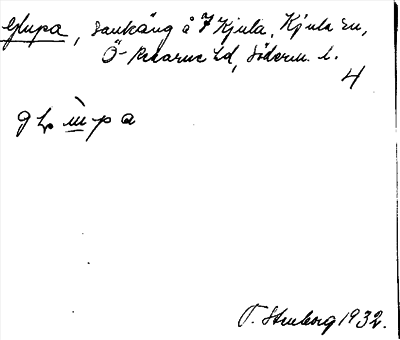 Glupa, sankäng å 7 Kjula, Kjula sn,
Ö-Rekarne hd, Söderm. l.
4
V. Stenborg 1932.